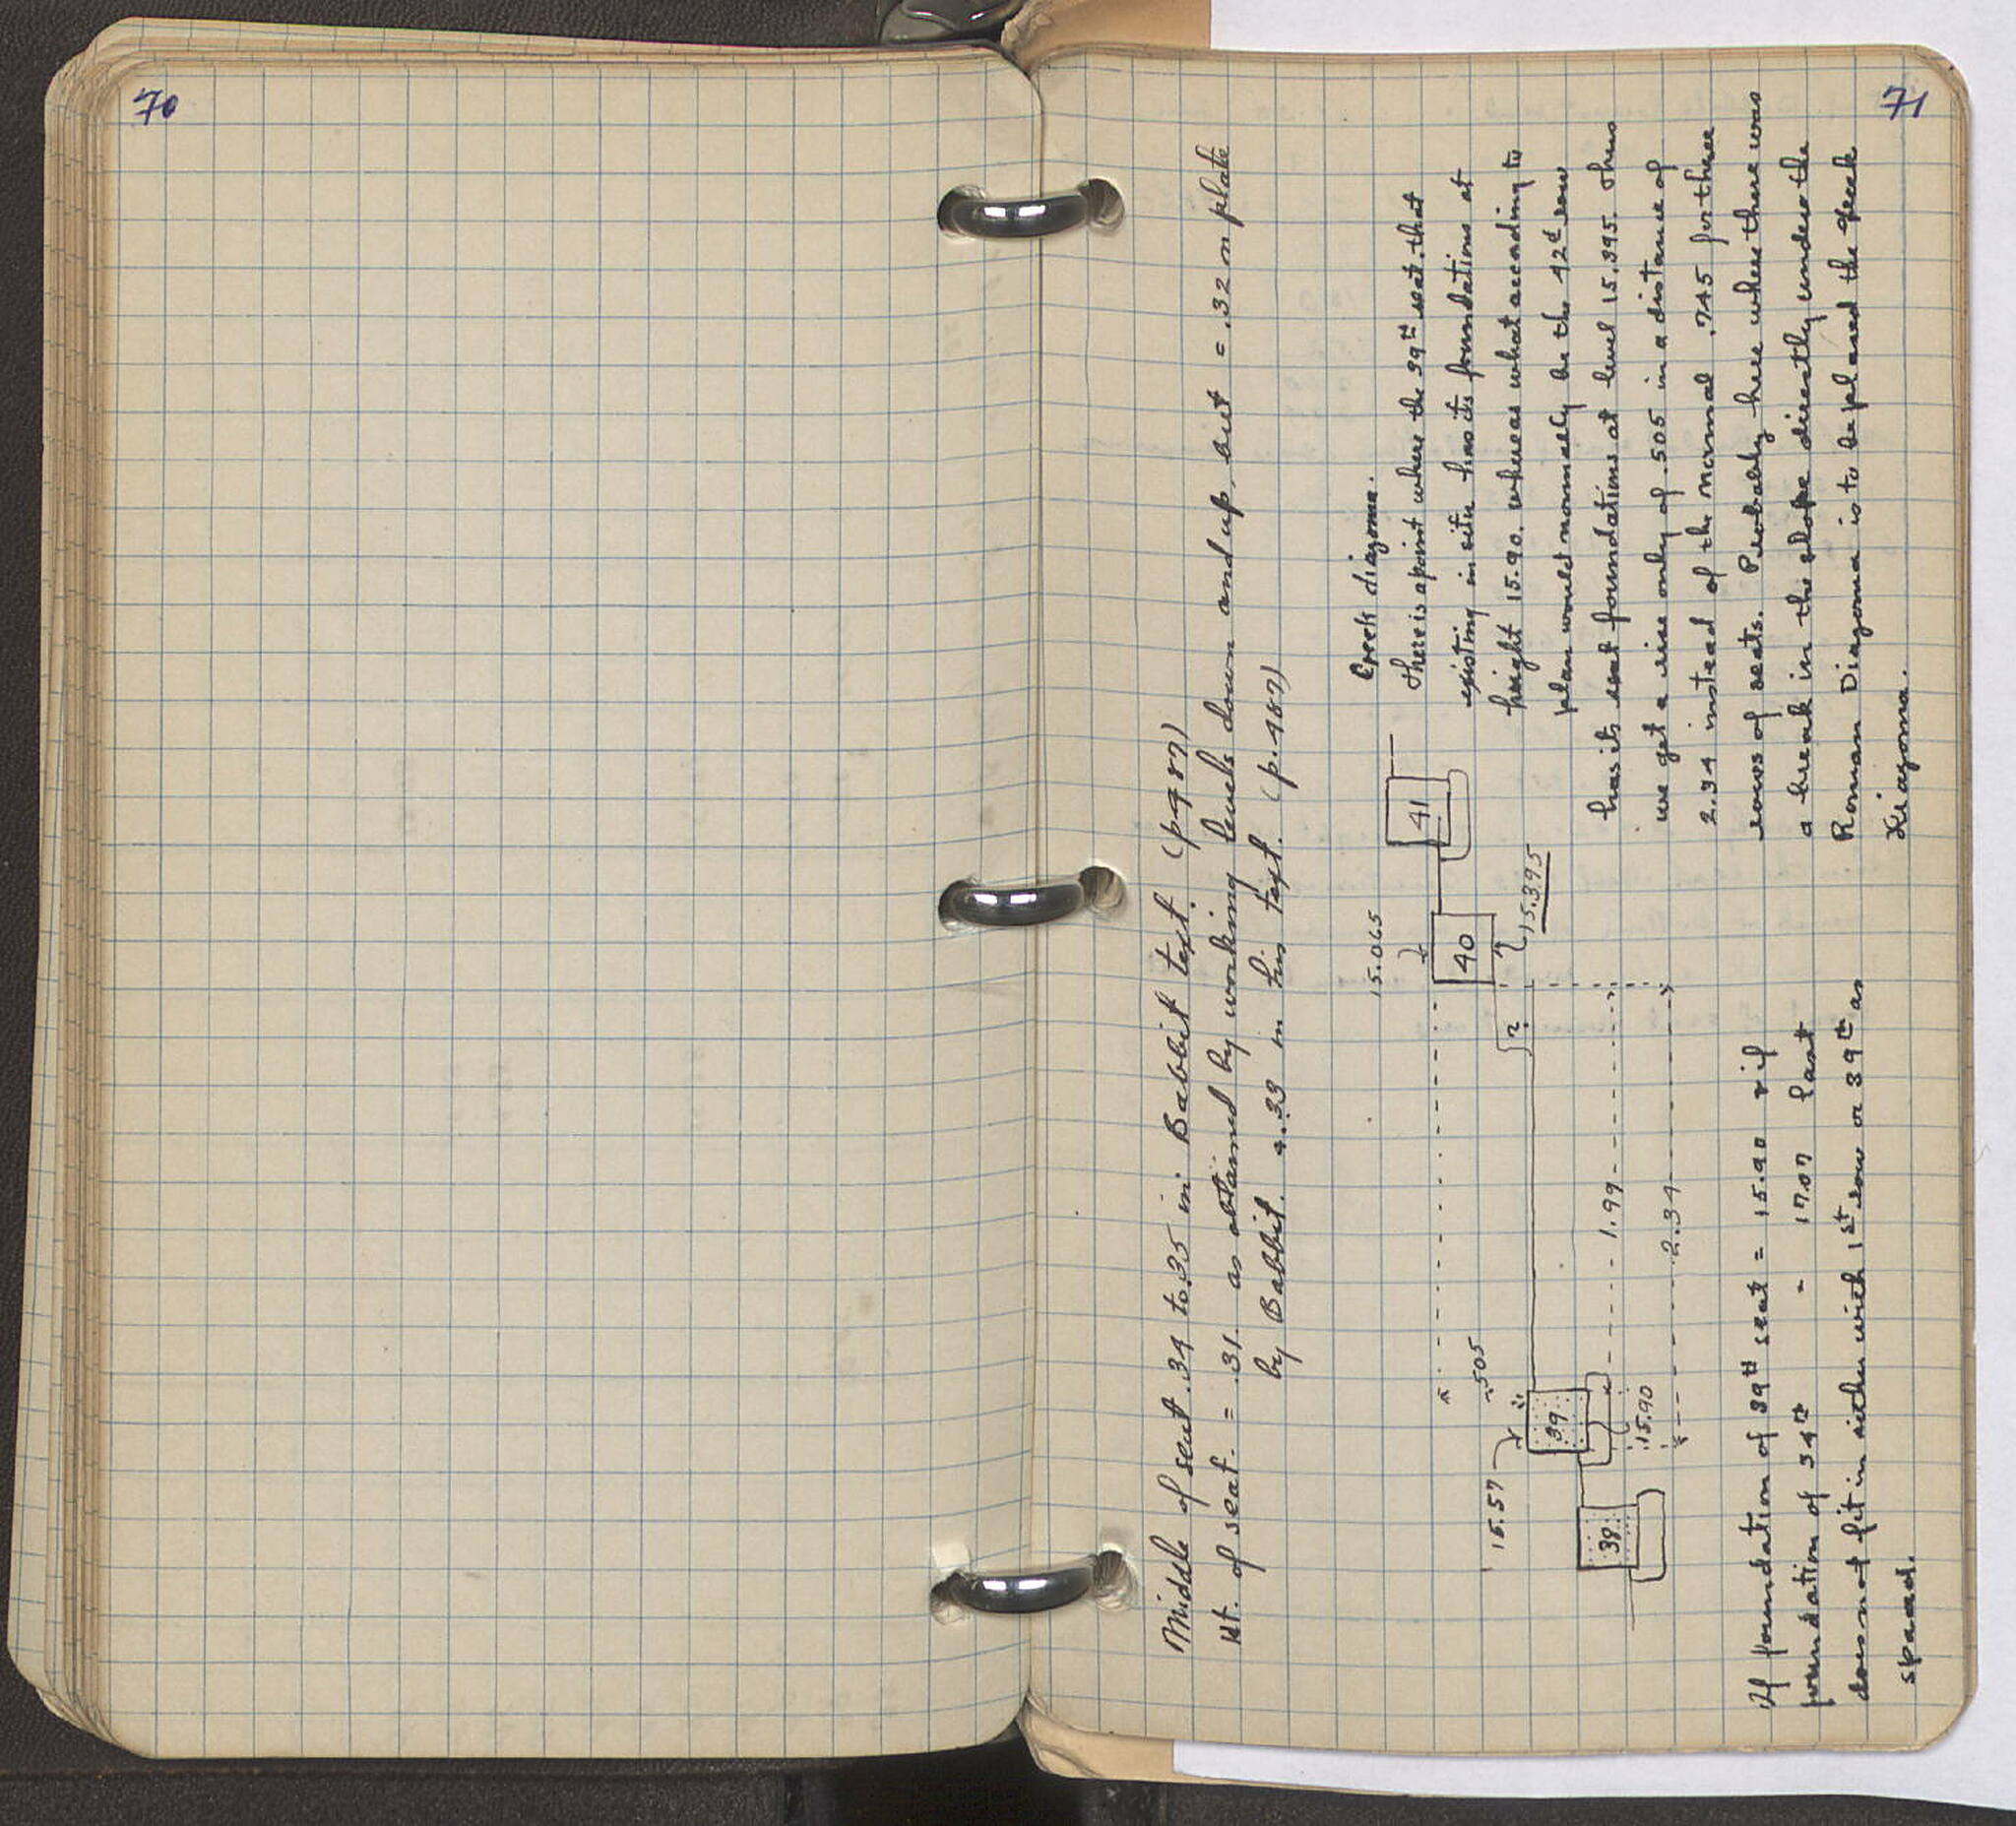 70
71
Middle of seat .34 to .35 in Babbit text. (p487)
Ht. of seat. = .31 as obtained by working levels down and up, but = .32 in plate
by Babbit. a .33 in his text. (p.487)
Greek diazoma.
There is a point where the 39th seat that
existing in situ has its foundations at
height 15.90. whereas what according to
plan would normally be the 42d row
has its seat foundations at level 15.395. Thus
we get a rise only of .505 in a distance of
2.34 instead of the normal .745 for three
rows of seats. Probably here where there was
a break in the slope directly under the
Roman Diazoma is to be placed the Greek
Diazoma.
15.065
41
40
15.395
?
.505
15.57
39
38
15.90
1.99
2.34
If foundation of 39th seat = 15.90 & if
foundation of 34th " = 17.07 last
does not fit in either with 1st row or 39th as
spaced.